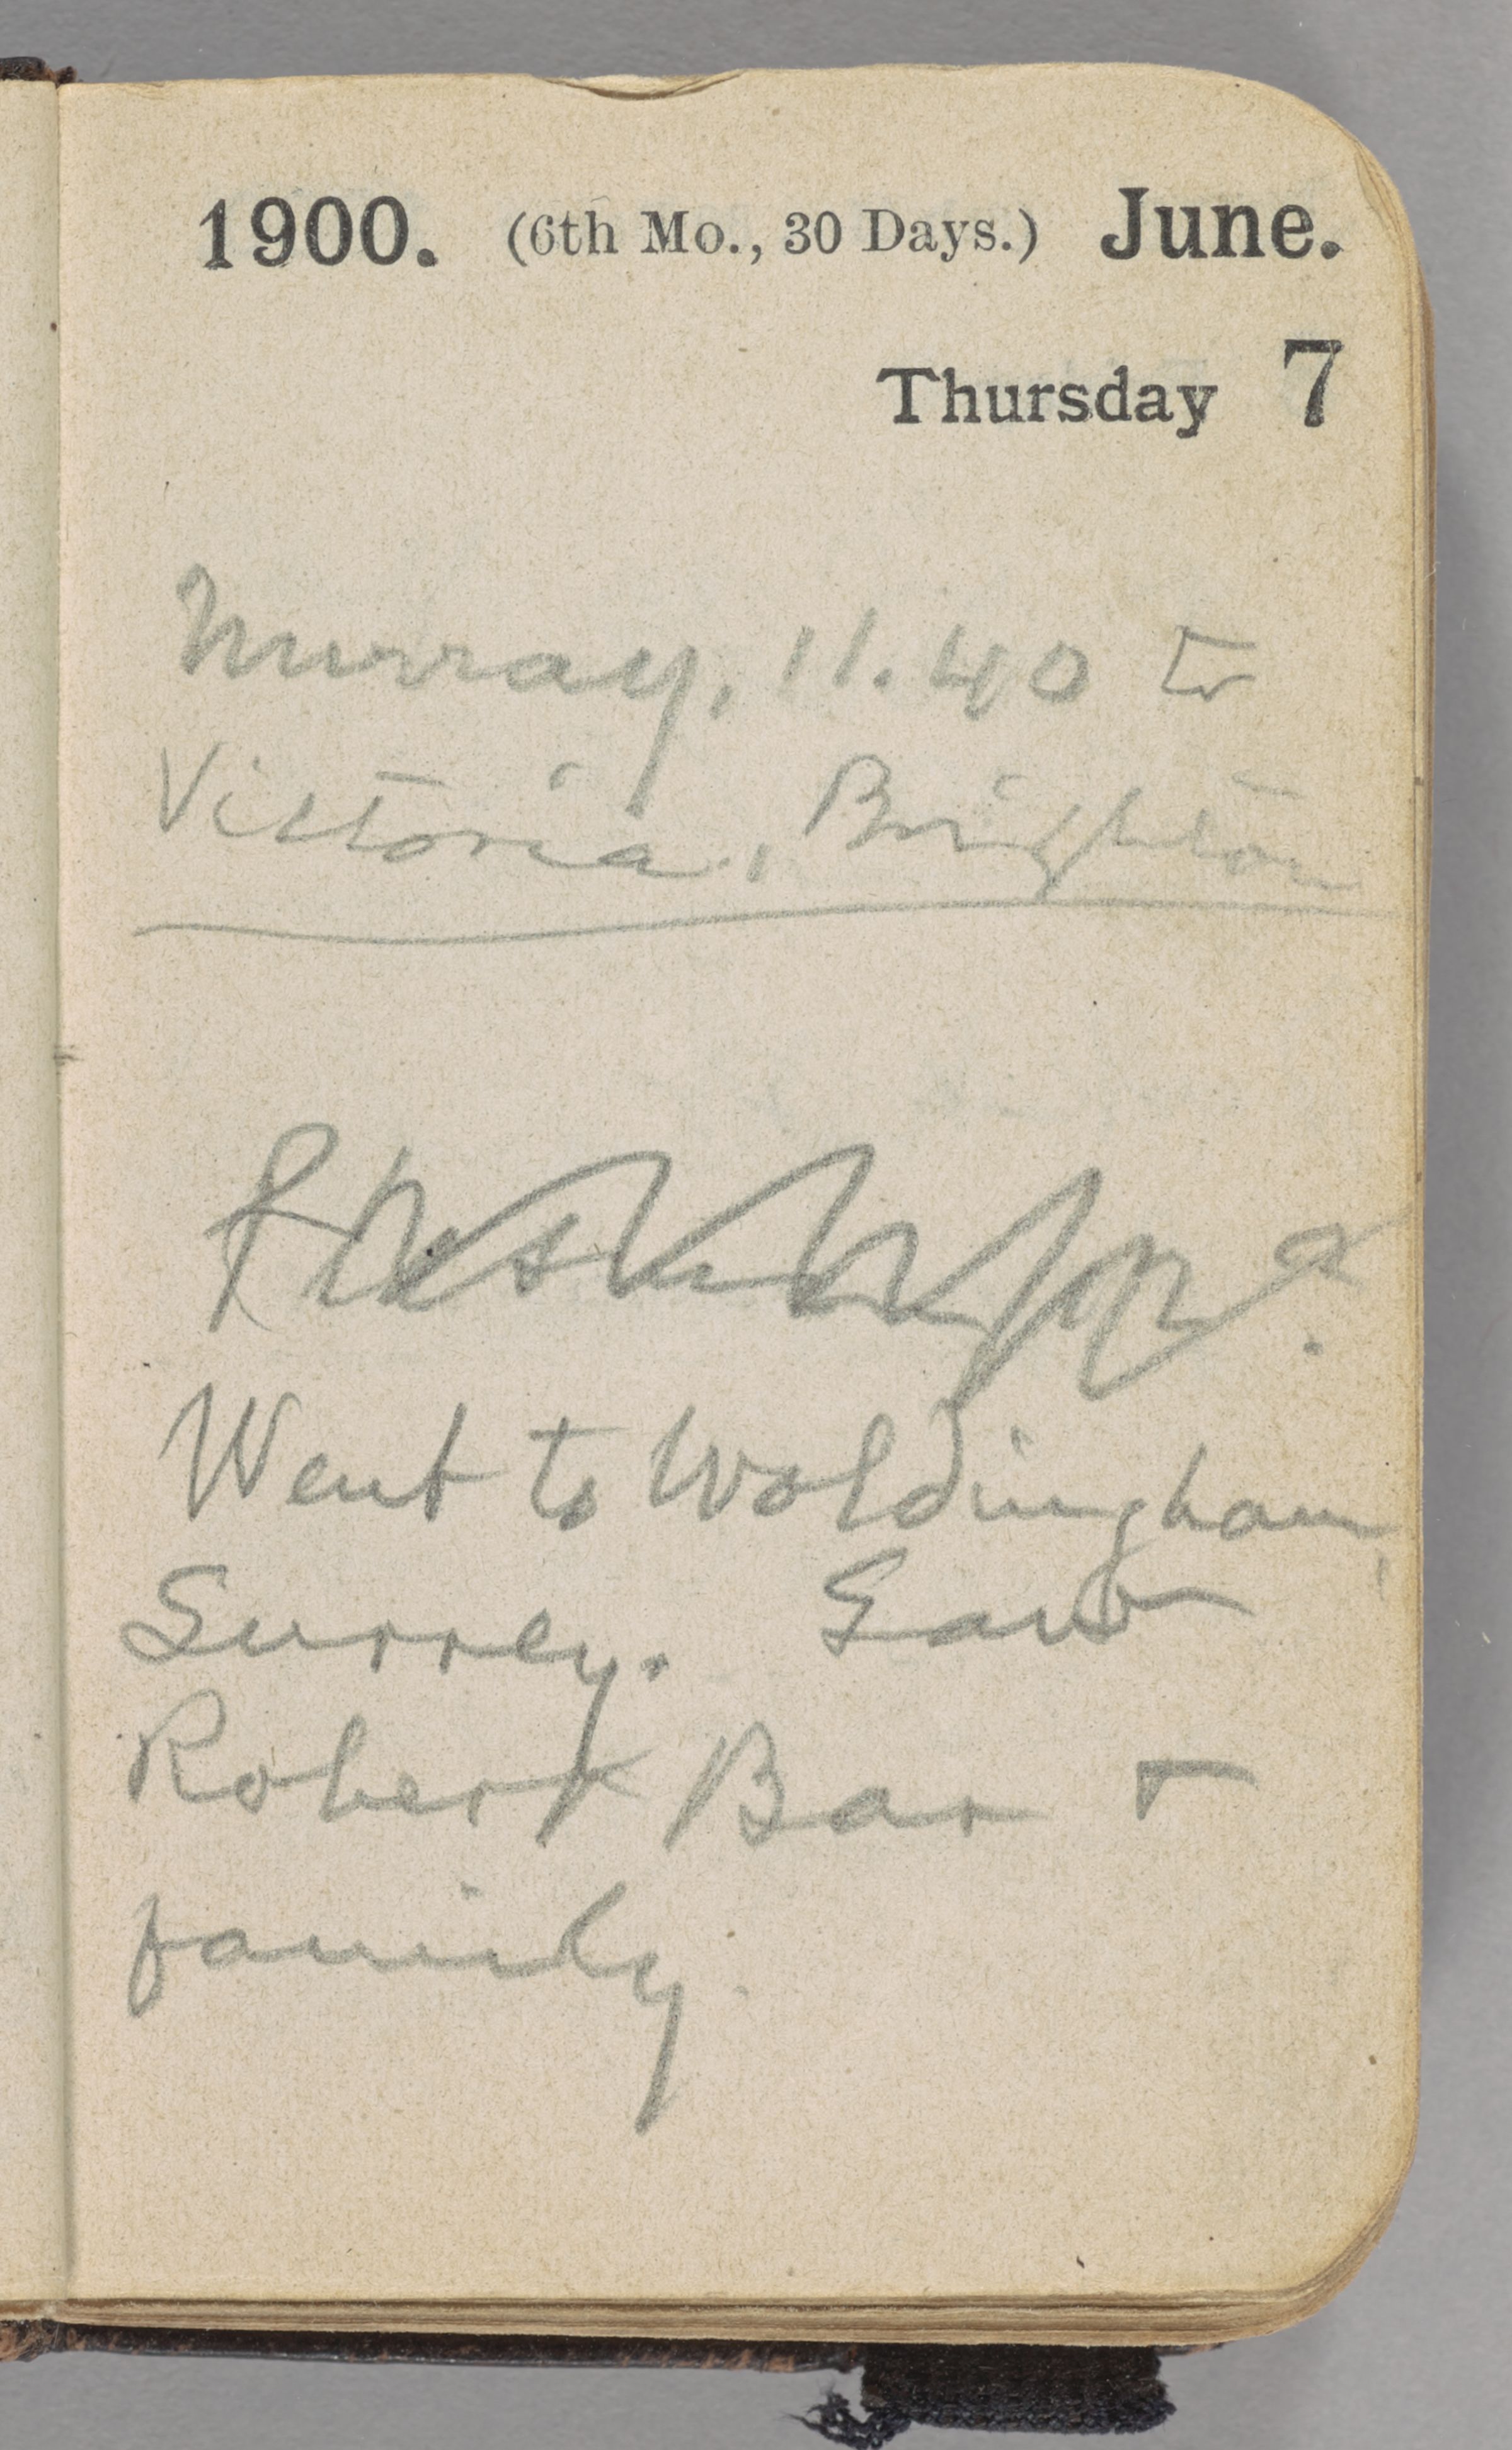 1900. (6th Mo., 30 Days.) June.
Thursday 7
Murray, 11.40 to
Victoria, Brighton
Went to Woldingham,
Surrey. Saw
Robert Bar +
family.